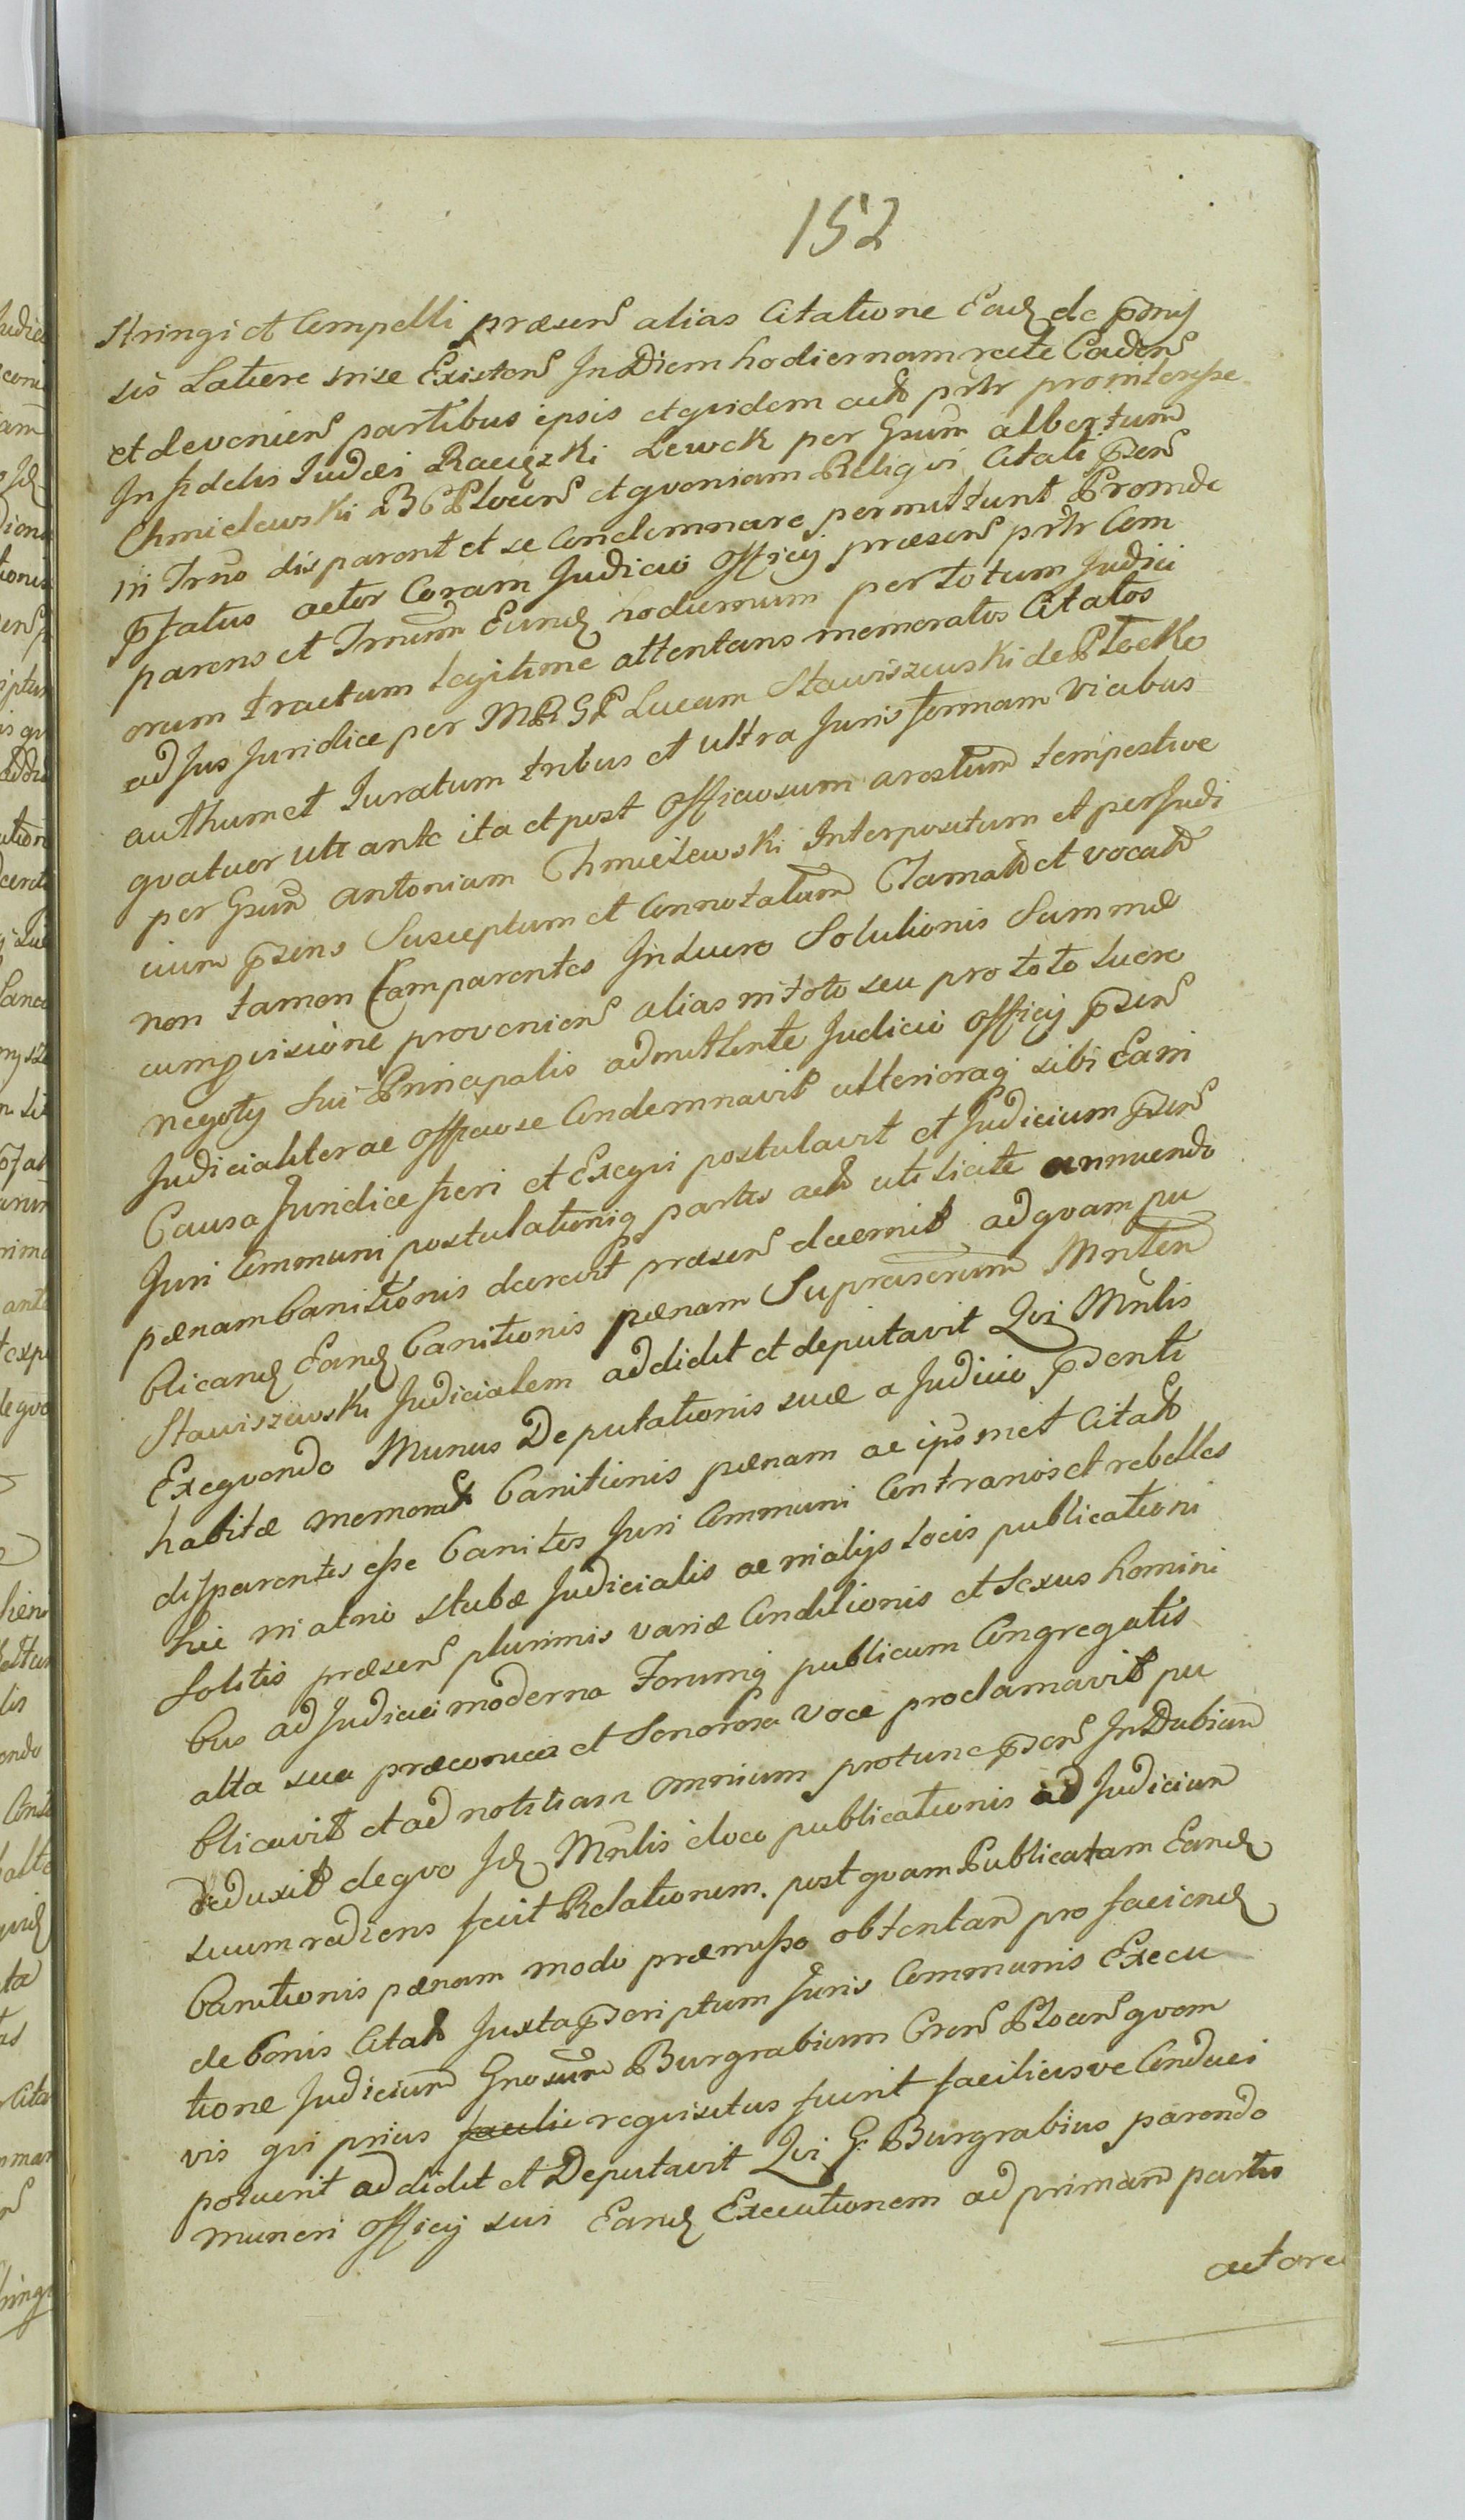 152
stringi et Compelli præsen alias Citatione Ead de pmis
sis Latiere inse Existen In Diem hodiernam recte Caden
et devenien partibus ipsis et quidem acto pntr pro interesse
Infidelis Judæi Raciązki Lewek per Gsum albertum
Chmielewski BCPlocen et quoniam Reliqui Citati psen
in Trno disparent et se Condemnare permittunt Proinde
pfatus actor Coram Judicio Officij præsen pntr Com
parens et Trnum Eund hodiernum per totum Judici
orum tractum legitime attentans memoratos Citatos
ad Jus Juridice per MRSP Lucam Stawiszewski de Plocko
authum et Juratum tribus et ultra Juris formam Vicibus
quatuor uti ante ita et post Officiosum arestum tempestive
per Gsum antonium Chmielewski Interpositum et per Judi
cium psens Susceptum et Connotatum Clamato et vocato
non tamen Comparentes In Lucro Solutionis Summæ
cumquisione provenien alias in toto seu pro toto lucro
negotij sui Principalis admittente Judicio Officij psen
Judicialiter ac officiose Condemnavit ulterioraq sibi Ea in
Causa Juridice fieri et Exequi postulavit et Judicium psen
Juri Communi postulationiq partis acto uti licite annuendo
pænam banitionis decrevit præsen decernit ad quam pu
blicand Eand banitionis pænam Suprascrium Mnten
Stawiszewski Judicialem addidit et deputavit Qui Mnlis
Exequendo Munus Deputationis suæ a Judicio psenti
habitæ memorato banitionis pænam ac ipsosmet Citato
disparentes esse banitos Juri Communi Contrarios et rebelles
hic in atrio stubæ Judicialis ac in alijs locis publicationi
Solitis præsen plurimis variæ Conditionis et Sexus homini
bus ad Judicia moderna Forumq publicum Congregatis
alta sua præconica et Sonorosa voce proclamavit pu
blicavit et ad notitiam omnium protunc psen In Dubium
deduxit de quo Id Mnlis e loco publicationis ad Judicium
suum rediens fecit Relationem. post quam Publicatam Eand
banitionis pænam modo præmisso obtentam pro faciend
de bonis Citato Juxta pscriptum Juris Communis Execu
tione Judicium Gnosum Burgrabium Cren Plocen quem
vis qui prius facilie requisitus fuerit faciliusve Conduci
potuerit addidit et Deputavit Qui G. Burgrabius parendo
muneri officij sui Eand Executionem ad primam partis
actorea